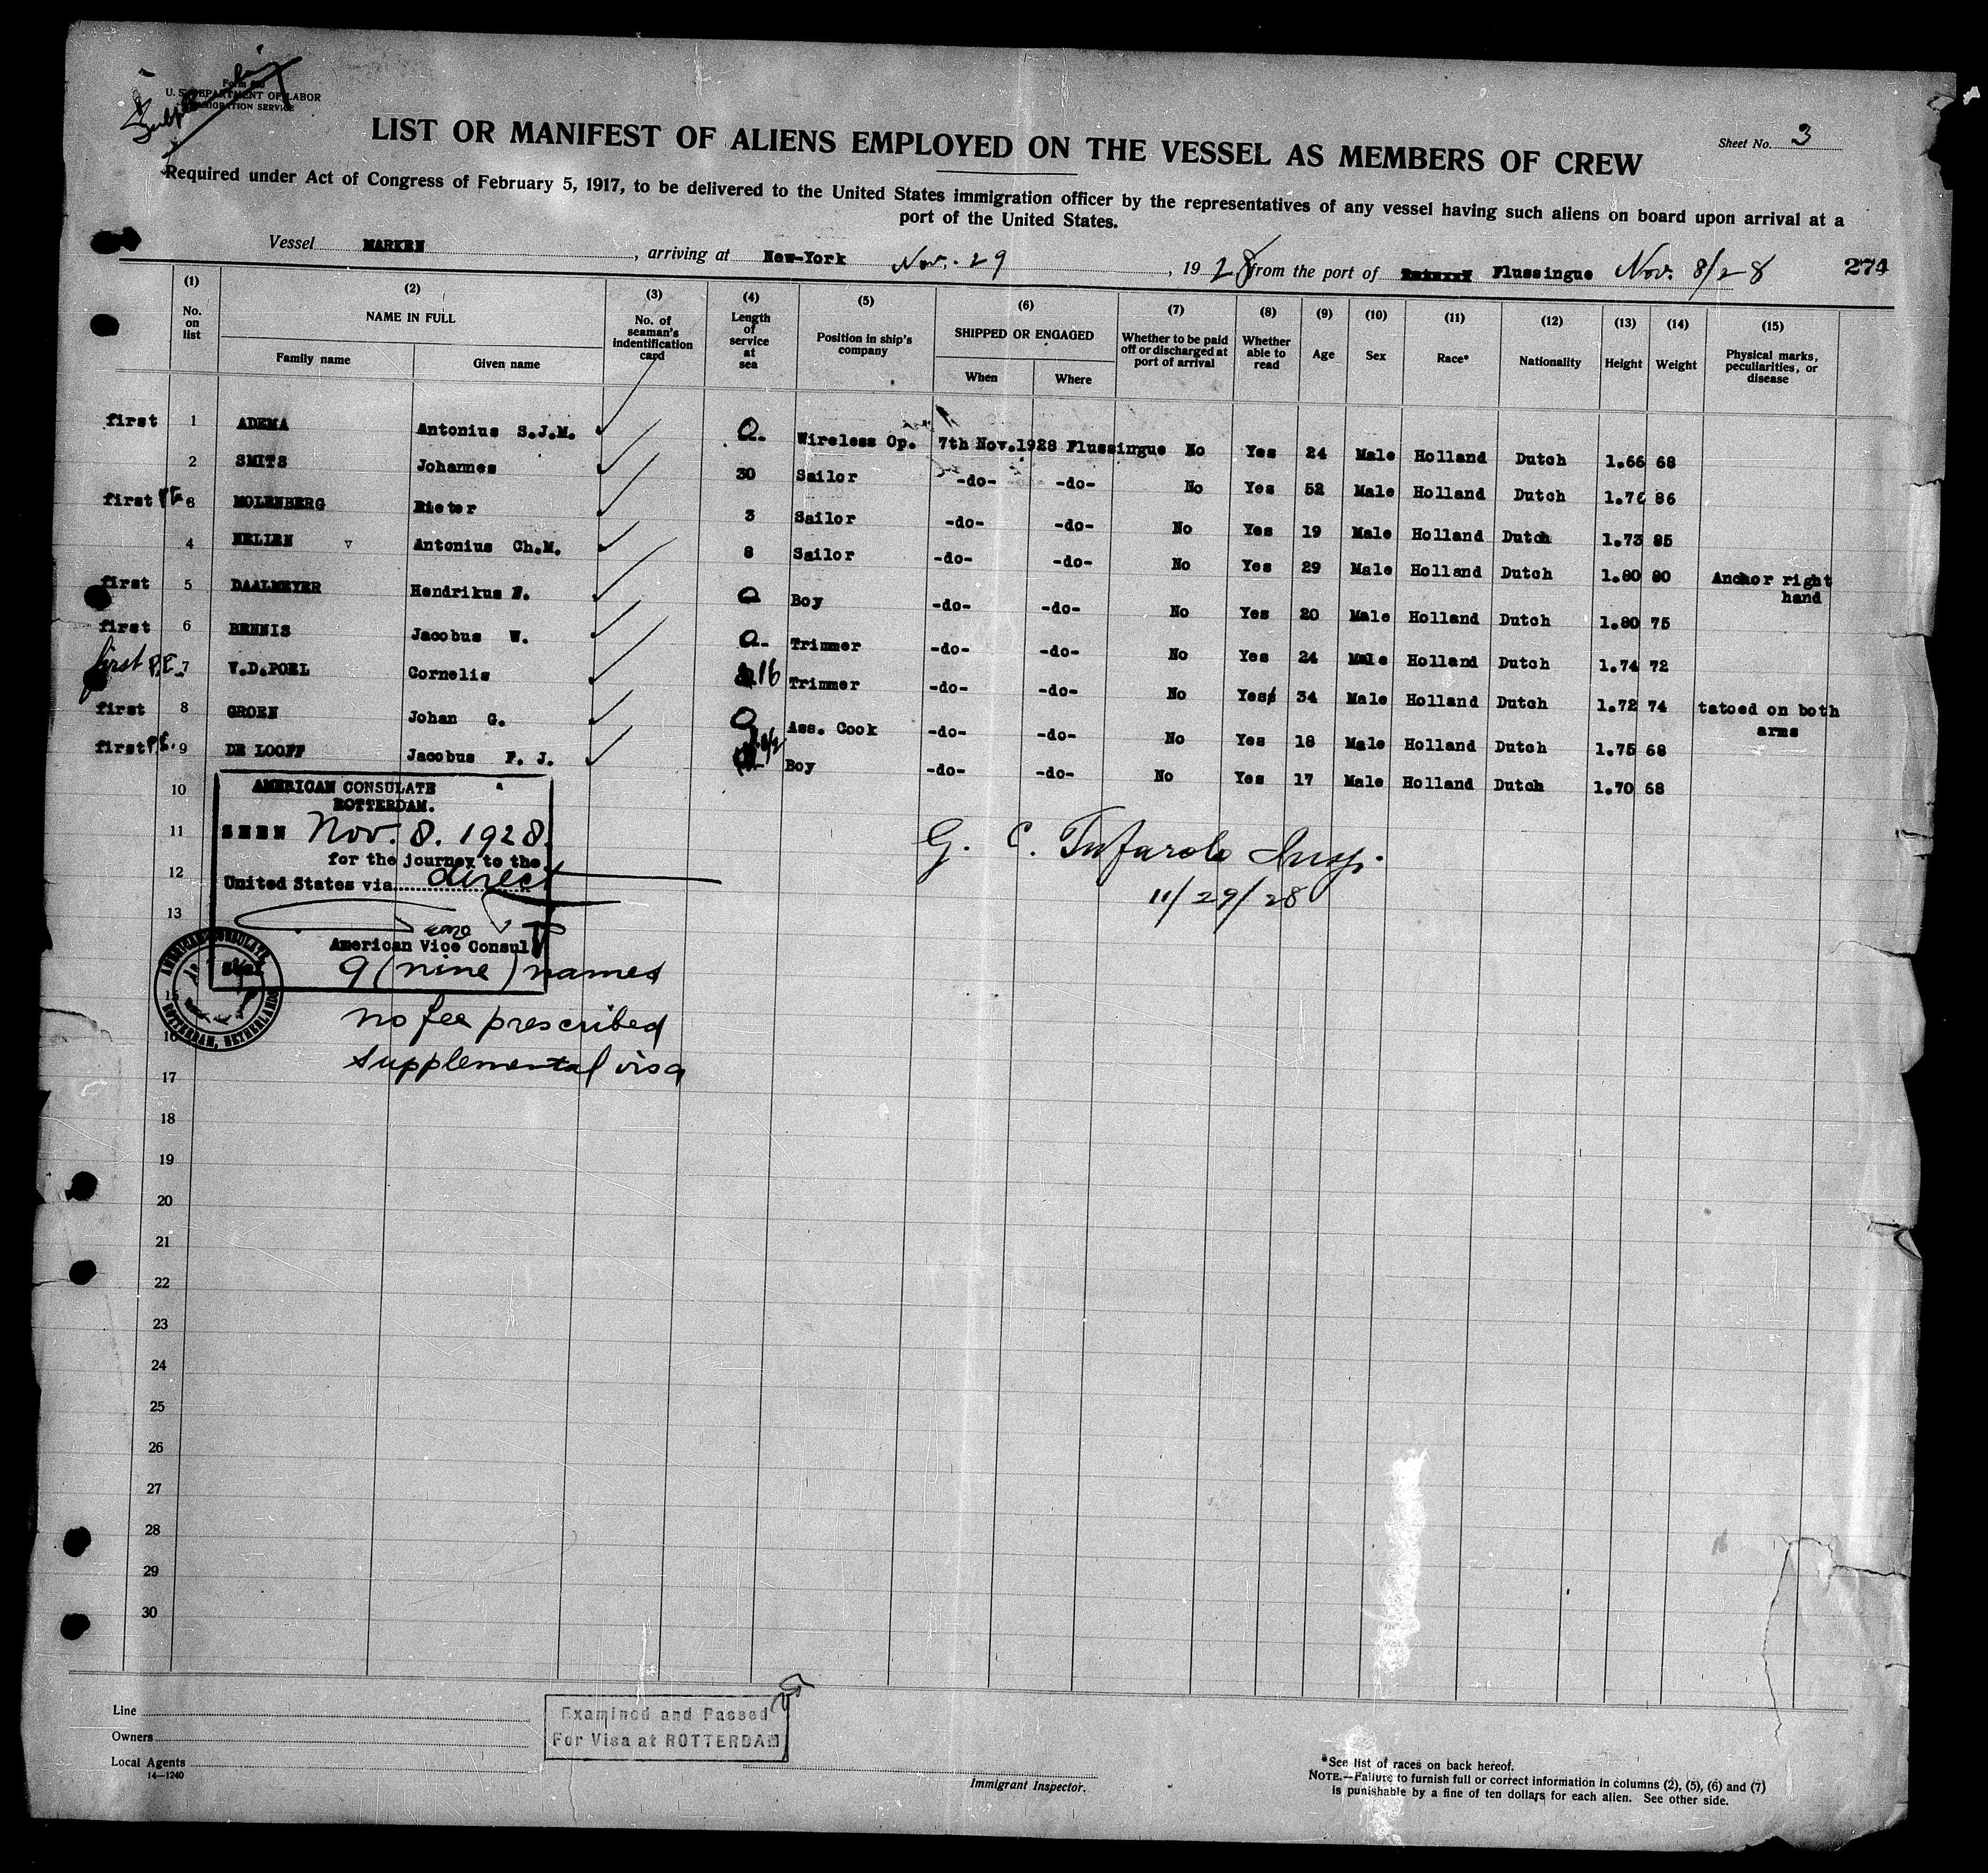 Form 680
U. S. DEPARTMENT OF LABOR
IMMIGRATION SERVICE
Sheet No. 3
LIST OR MANIFEST OF ALIENS EMPLOYED ON THE VESSEL AS MEMBERS OF CREW
Required under Act of Congress of February 5, 1917, to be delivered to the United States immigration officer by the representatives of any vessel having such aliens on board upon arrival at a
port of the United States.
Vessel MARKEN, arriving at New-York Nov. 29, 1928 from the port of Flussingue Nov. 8/28 274
(1) (2) (3) (4) (5) (6) (7) (8) (9) (10) (11) (12) (13) (14) (15)
No. on list NAME IN FULL Family name Given name No. of seaman's indentification card Length of service at sea Position in ship's company SHIPPED OR ENGAGED When Where Whether to be paid off or discharged at port of arrival Whether able to read Age Sex Race* Nationality Height Weight Physical marks, peculiarities, or disease
first 1 ADEMA Antonius S.J.M. 0 Wireless Op. 7th Nov.1928 Flussingue No Yes 24 Male Holland Dutch 1.66 68
2 SMITS Johannes 30 Sailor -do- -do- No Yes 52 Male Holland Dutch 1.76 86
first P.E. 3 MOLENBERG Pieter 3 Sailor -do- -do- No Yes 19 Male Holland Dutch 1.73 85
4 NELIEN Antonius Ch.M. 8 Sailor -do- -do- No Yes 29 Male Holland Dutch 1.80 80 Anchor right hand
first 5 DAALMEYER Hendrikus F. 0 Boy -do- -do- No Yes 20 Male Holland Dutch 1.80 75
first 6 BENNIS Jacobus W. 0 Trimmer -do- -do- No Yes 24 Male Holland Dutch 1.74 72
first P.E. 7 V.D.POEL Cornelis 16 Trimmer -do- -do- No Yes 34 Male Holland Dutch 1.72 74 tatoed on both arms
first 8 GROEN Johan G. 0 Ass. Cook -do- -do- No Yes 18 Male Holland Dutch 1.75 68
first P.E. 9 DE LOOFF Jacobus F. J. Boy -do- -do- No Yes 17 Male Holland Dutch 1.70 68
10
11
12
13
15
16
17
18
19
20
21
22
23
24
25
26
27
28
29
30
AMERICAN CONSULATE
ROTTERDAM.
SEEN Nov. 8. 1928.
for the journey to the
United States via direct
American Vice Consul
Seal
9 (nine) names
no fee prescribed
supplemental visa
AMERICAN CONSULATE, ROTTERDAM, NETHERLANDS
G. C. Tufarolo Insp.
11/29/28
Line
Owners
Local Agents
14—1240
Examined and Passed
For Visa at ROTTERDAM
Immigrant Inspector.
*See list of races on back hereof.
NOTE.—Failure to furnish full or correct information in columns (2), (5), (6) and (7)
is punishable by a fine of ten dollars for each alien. See other side.